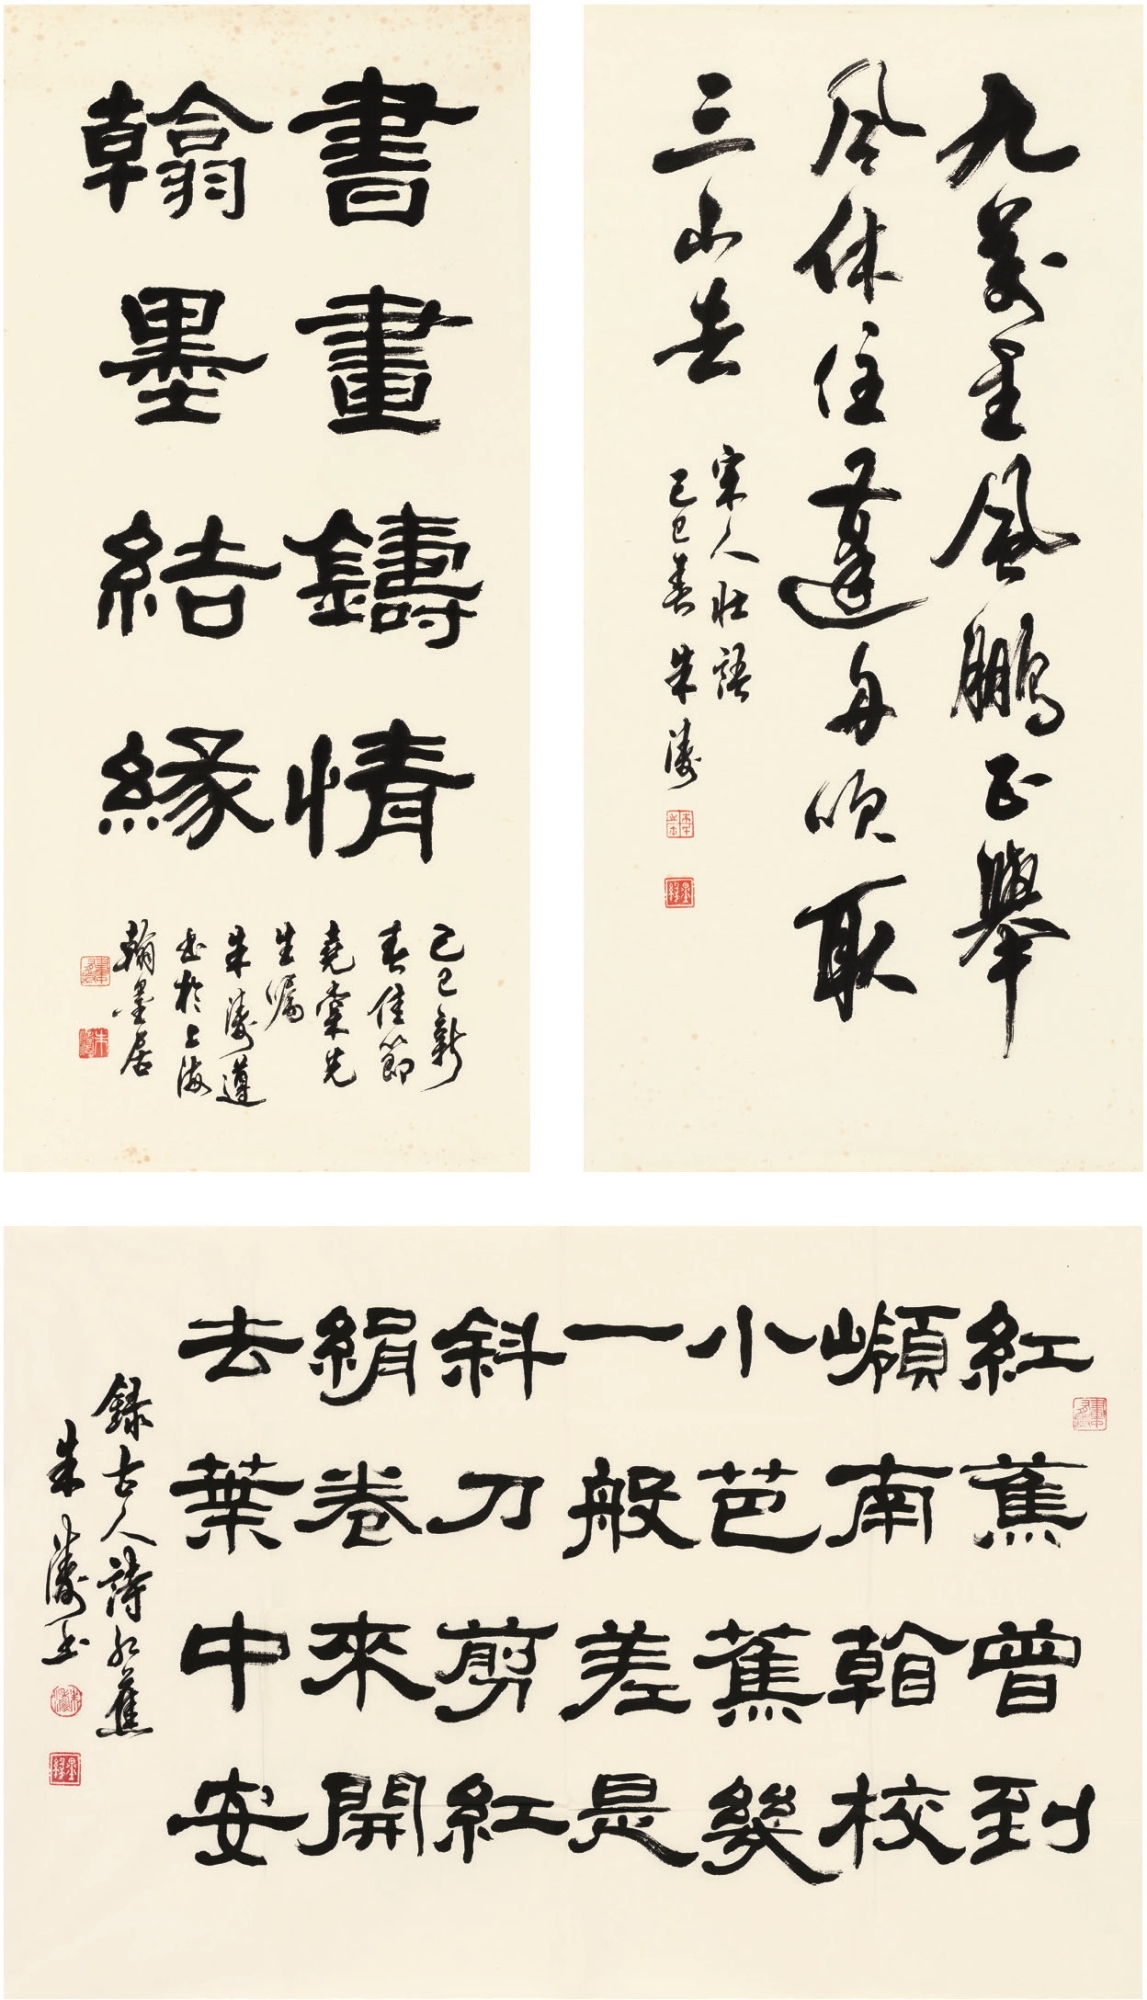 書畫鑄情
翰墨結緣
己巳新
春佳節
堯棠先
生囑
朱濤遵
书於上海
翰墨居
九萬里風鵬正舉
风休住蓬舟吹取
三山去
宋人壯語
己巳春 朱濤
紅蕉曾到
嶺南看校
小芭蕉幾
一般差是
斜刀剪紅
絹卷來開
去葉中安
録古人詩紅蕉
朱濤书